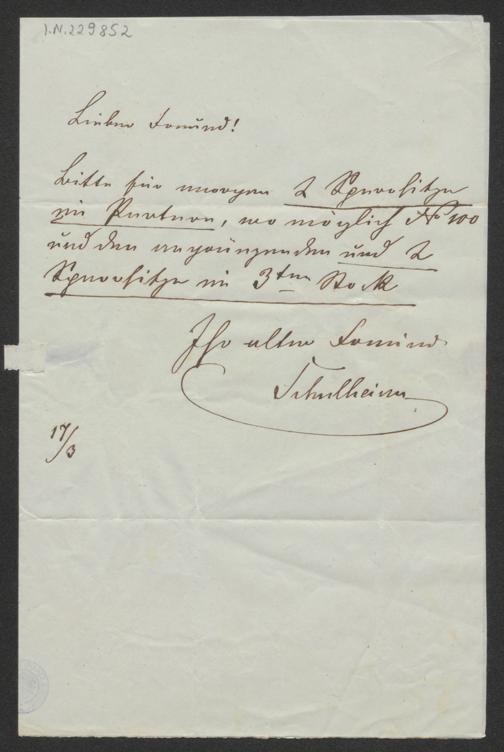 I.N. 229852
Lieber Freund!
Bitte für morgen 2 Sperrsitze
im Parterre, wo möglich No 100
und den angränzenden und 2
Sperrsitze im 3ten Stock
Ihr alter Freund
17/3